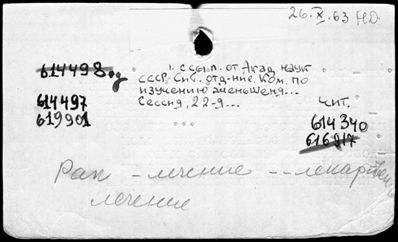 26.X.63 НО.
614498
1. ссыл. от Акад наук
СССР. Сиб. отд-ние. Ком. по
изучению женьшеня...
Сессия, 22-я...
614497
619901
чит.
614340
616917
Рак - лечение -- лекарствен
лечение